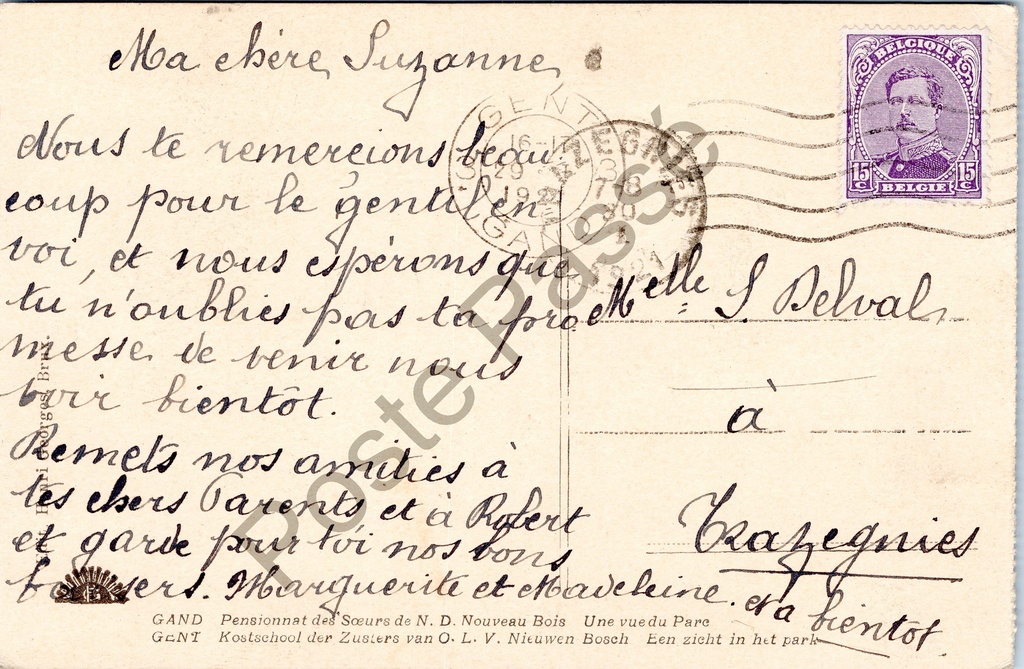 Ma chère Suzanne
Nous te remercions beau
coup pour le gentil en
voi, et nous espérons que
tu n'oublies pas ta pro
messe de venir nous
voir bientôt.
Remets nos amitiés à
tes chers Parents et à Robert
et garde pour toi nos bons
baisers. Marguerite et Madeleine.
et à bientôt
Melle S. Delval
à
Trazegnies
BELGIQUE
15 c
15 c
BELGIE
GENT
16-17
29
GAND
7-8
30
1921
Poste Passée
GAND Pensionnat des Sœurs de N. D. Nouveau Bois Une vue du Parc
GENT Kostschool der Zusters van O. L. V. Nieuwen Bosch Een zicht in het park